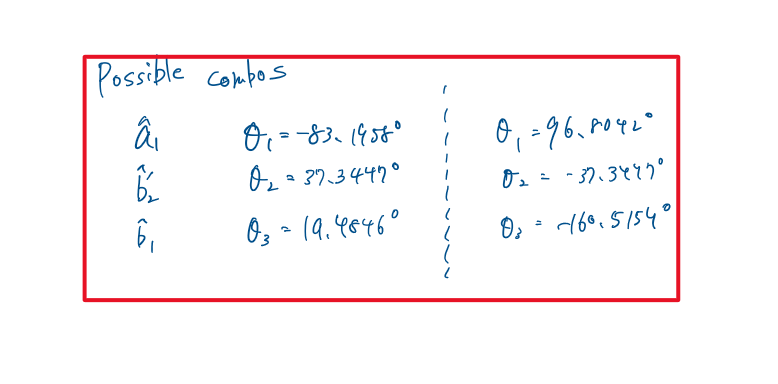 Possible combos
â₁ θ₁ = -83.1958° θ₁ = 96.8042°
b̂₂′ θ₂ = 37.3447° θ₂ = -37.3447°
b̂₁ θ₃ = 19.4846° θ₃ = -160.5154°